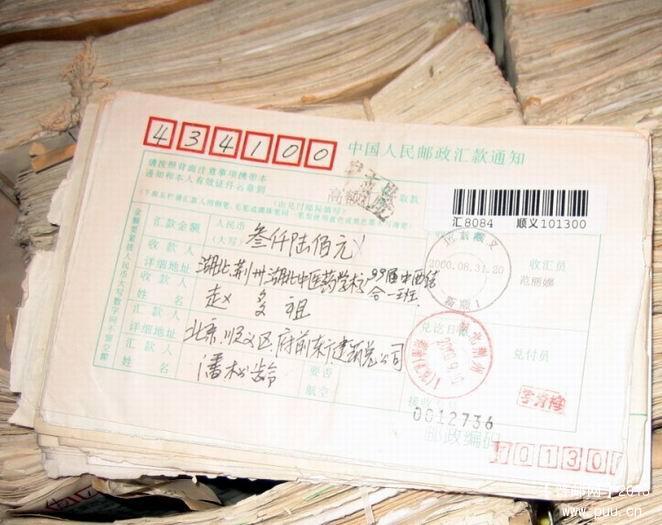 434100
中国人民邮政汇款通知
请按照背面注意事项携带本
通知和本人有效证件名章到
取款
高额汇款
汇8084 顺义101300
汇款金额
人民币
(大写)
叁仟陆佰元
收汇员
范丽娜
收款人
详细地址
湖北荆州湖北中医药学校99届中西结
合一班
收款人
姓名
赵多祖
北京顺义
2000.08.31.20
汇款人
详细地址
北京顺义区府前东街建筑总公司
兑讫日戳
兑付员
汇款人
姓名
潘松龄
要否
航空
0012736
邮政编码
101300
www.puu.cn